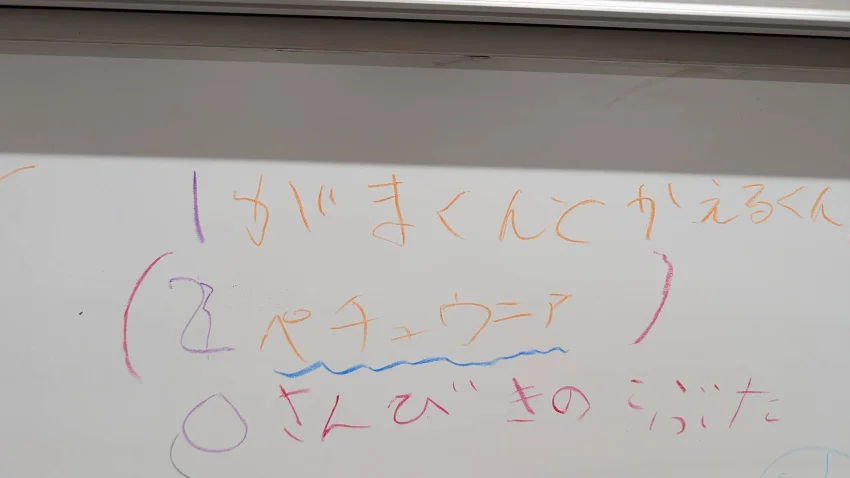 1 がまくんとかえるくん
(2 ペチュウニア)
0 さんびきのこぶた